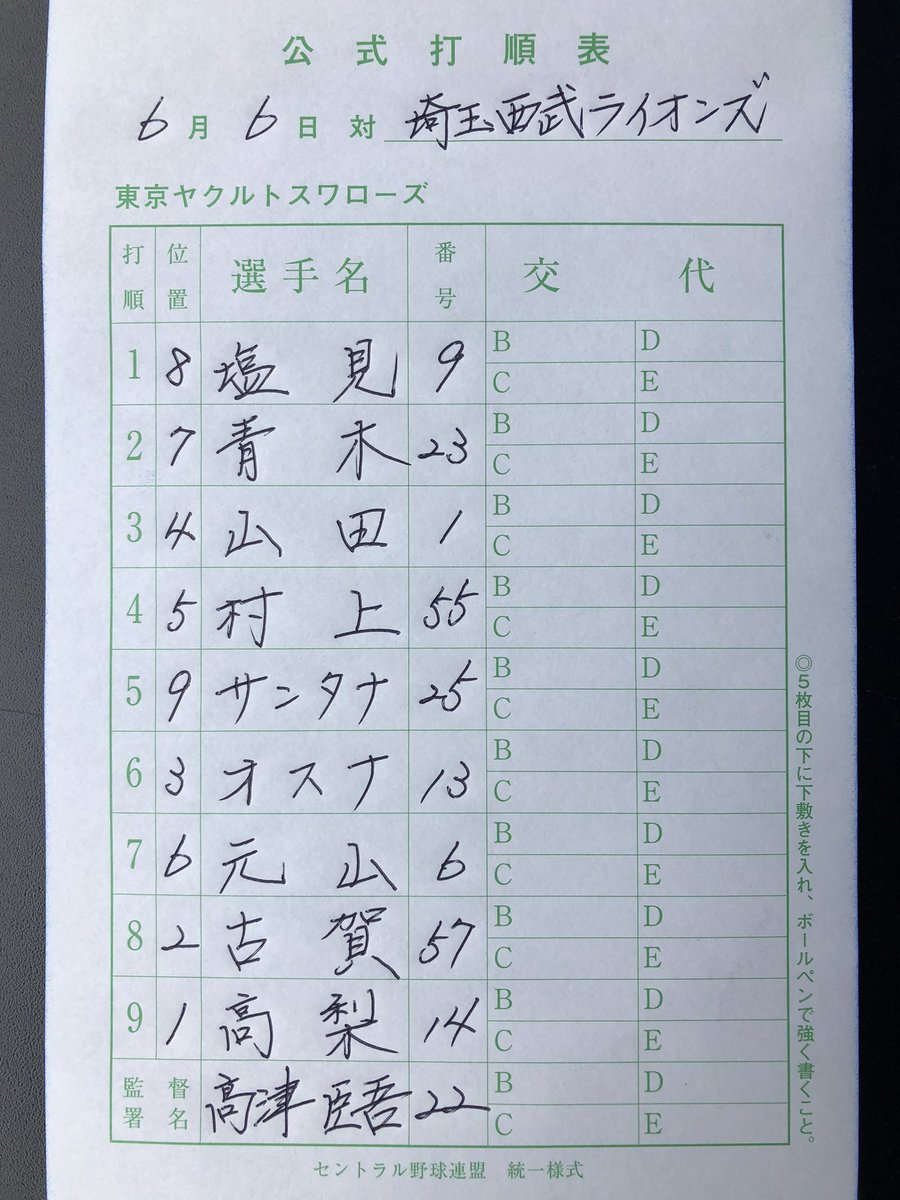 公式打順表
6月6日 対 埼玉西武ライオンズ
東京ヤクルトスワローズ
打順 位置 選手名 番号 交代
1 8 塩見 9 B D
C E
2 7 青木 23 B D
C E
3 4 山田 1 B D
C E
4 5 村上 55 B D
C E
5 9 サンタナ 25 B D
C E
6 3 オスナ 13 B D
C E
7 6 元山 6 B D
C E
8 2 古賀 57 B D
C E
9 1 高梨 14 B D
C E
監督署名 高津臣吾 22 B D
C E
◎5枚目の下に下敷きを入れ、ボールペンで強く書くこと。
セントラル野球連盟 統一様式